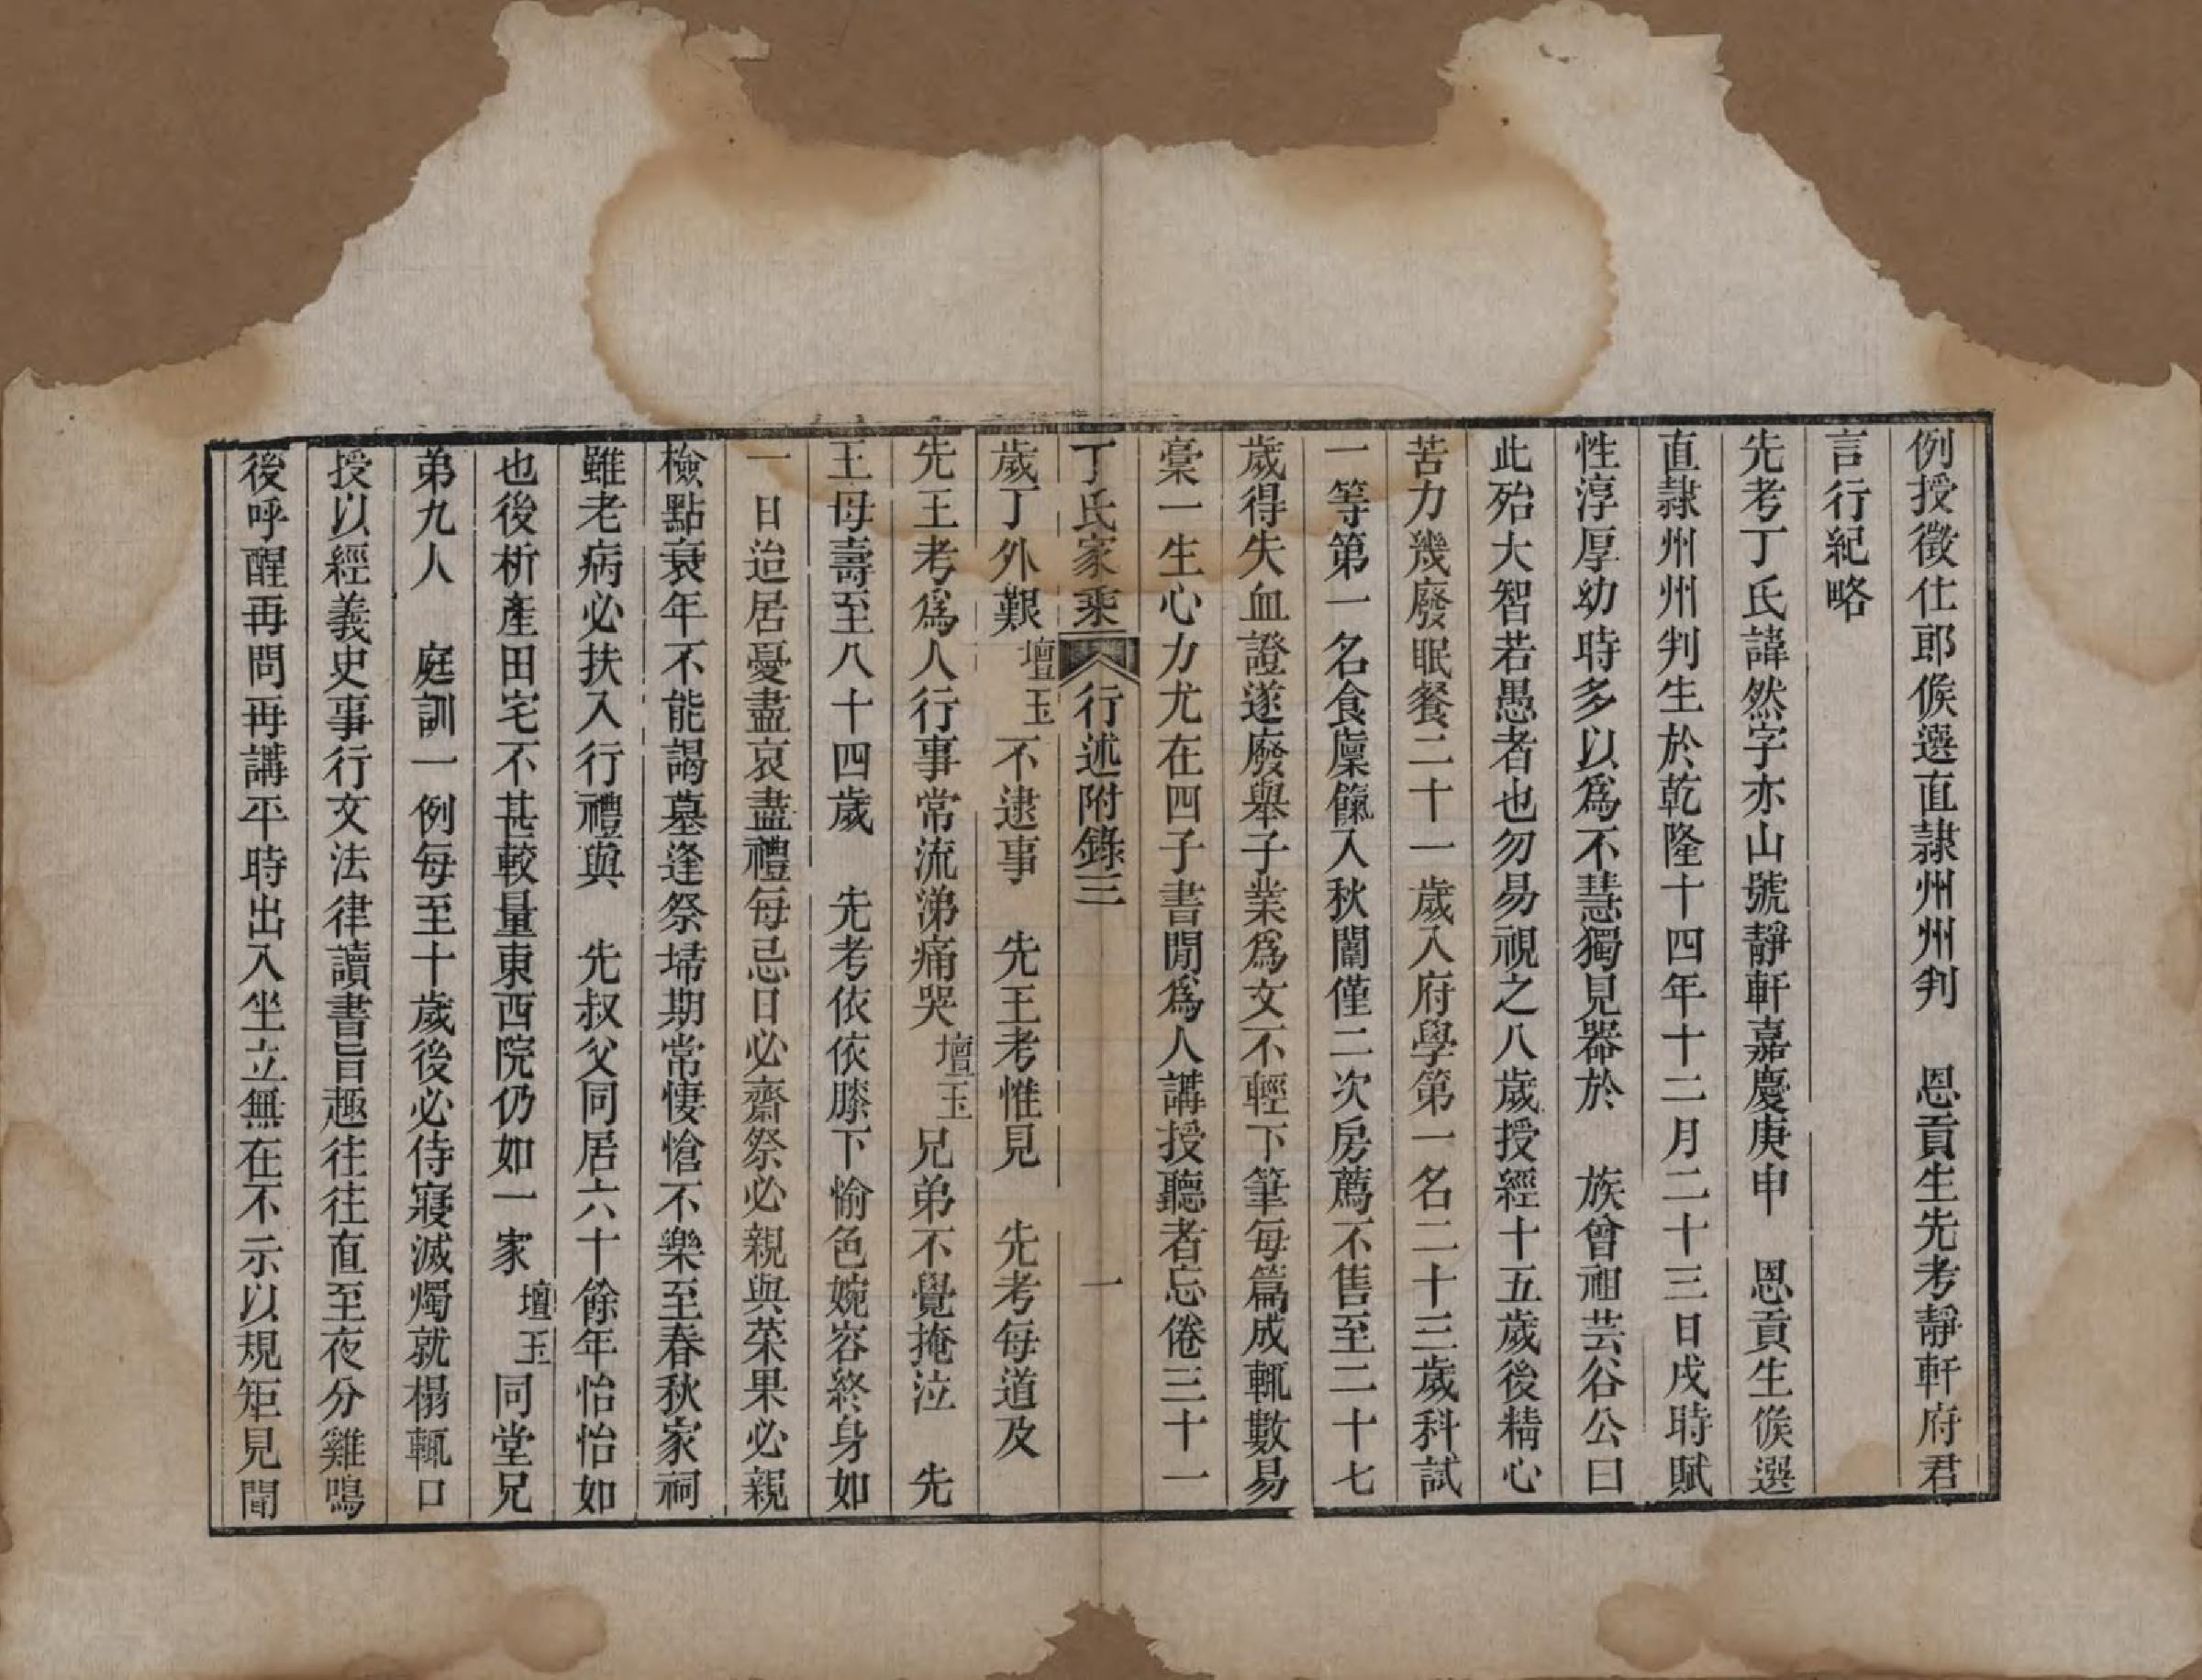 例授徵仕郎候選直隸州州判　恩貢生先考靜軒府君
言行紀略
先考丁氏諱然字亦山號靜軒嘉慶庚申　恩貢生候選
直隸州州判生於乾隆十四年十二月二十三日戌時賦
性淳厚幼時多以爲不慧獨見器於　族曾祖芸谷公曰
此殆大智若愚者也勿易視之八歲授經十五歲後精心
苦力幾廢眠餐二十一歲入府學第一名二十三歲科試
一等第一名食廩餼入秋闈僅二次房薦不售至二十七
歲得失血證遂廢舉子業爲文不輕下筆每篇成輒數易
稾一生心力尤在四子書閒爲人講授聽者忘倦三十一
丁氏家乘　行述附錄三　一
歲丁外艱壇玉不逮事　先王考惟見　先考每道及
先王考爲人行事常流涕痛哭壇玉兄弟不覺掩泣　先
王母壽至八十四歲　先考依依膝下愉色婉容終身如
一日治居憂盡哀盡禮每忌日必齋祭必親與菜果必親
檢點衰年不能謁墓逢祭埽期常悽愴不樂至春秋家祠
雖老病必扶入行禮與　先叔父同居六十餘年怡怡如
也後析產田宅不甚較量東西院仍如一家壇玉同堂兄
弟九人　庭訓一例每至十歲後必侍寢滅燭就榻輒口
授以經義史事行文法律讀書旨趣往往直至夜分雞鳴
後呼醒再問再講平時出入坐立無在不示以規矩見聞